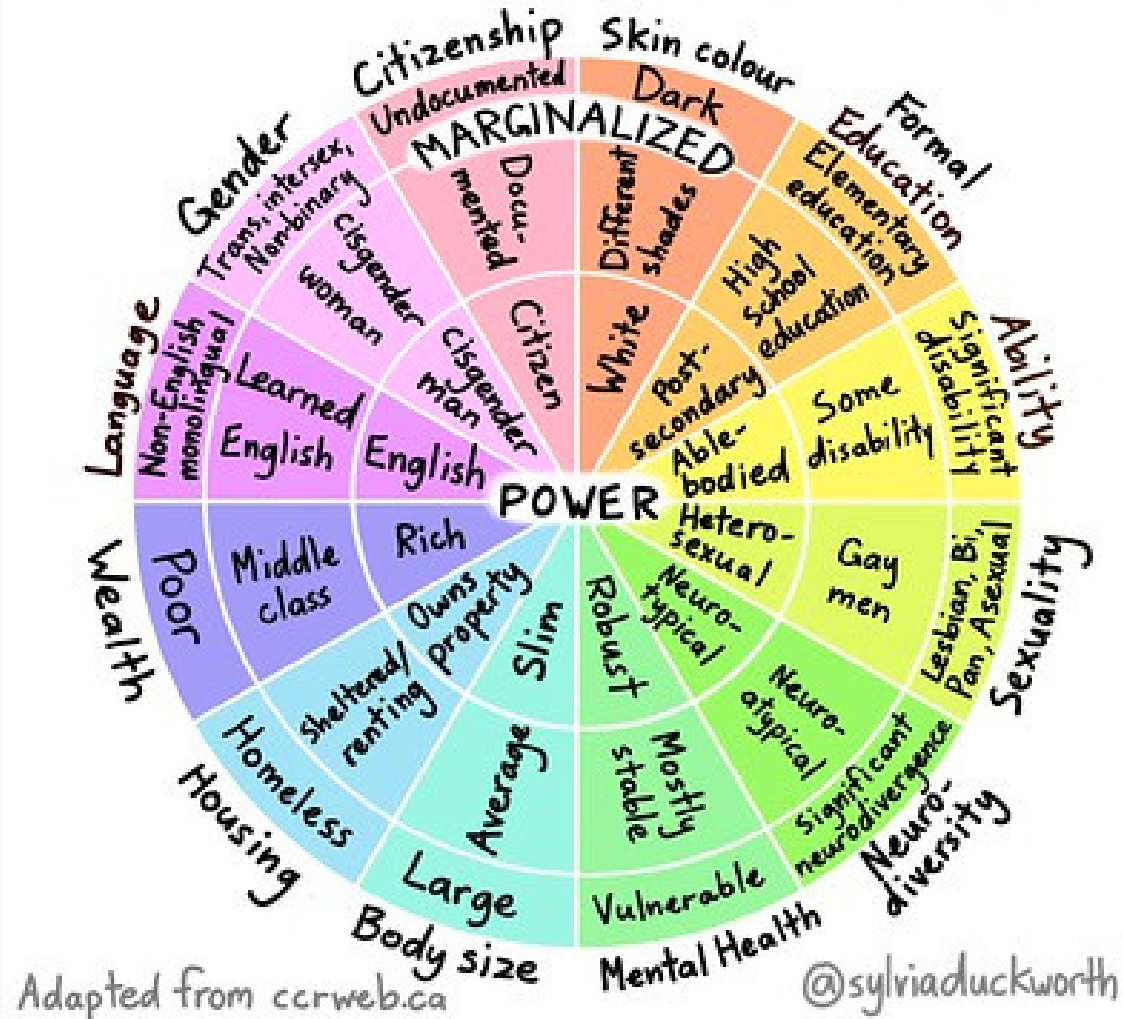 Citizenship
Undocumented
Docu-
mented
Citizen
Skin colour
Dark
Different
shades
White
Formal
Education
Elementary
education
High
School
education
Post-
secondary
Ability
Significant
disability
Some
disability
Able-
bodied
Sexuality
Lesbian, Bi,
Pan, Asexual
Gay
men
Hetero-
sexual
Neuro-
diversity
Significant
neurodivergence
Neuro-
atypical
Neuro-
typical
Mental Health
Vulnerable
Mostly
stable
Robust
Body size
Large
Average
Slim
Housing
Homeless
Sheltered/
renting
Owns
property
Wealth
Poor
Middle
class
Rich
Language
Non-English
monolingual
Learned
English
English
Gender
Trans, intersex,
Non-binary
Cisgender
woman
Cisgender
man
MARGINALIZED
POWER
Adapted from ccrweb.ca
@sylviaduckworth